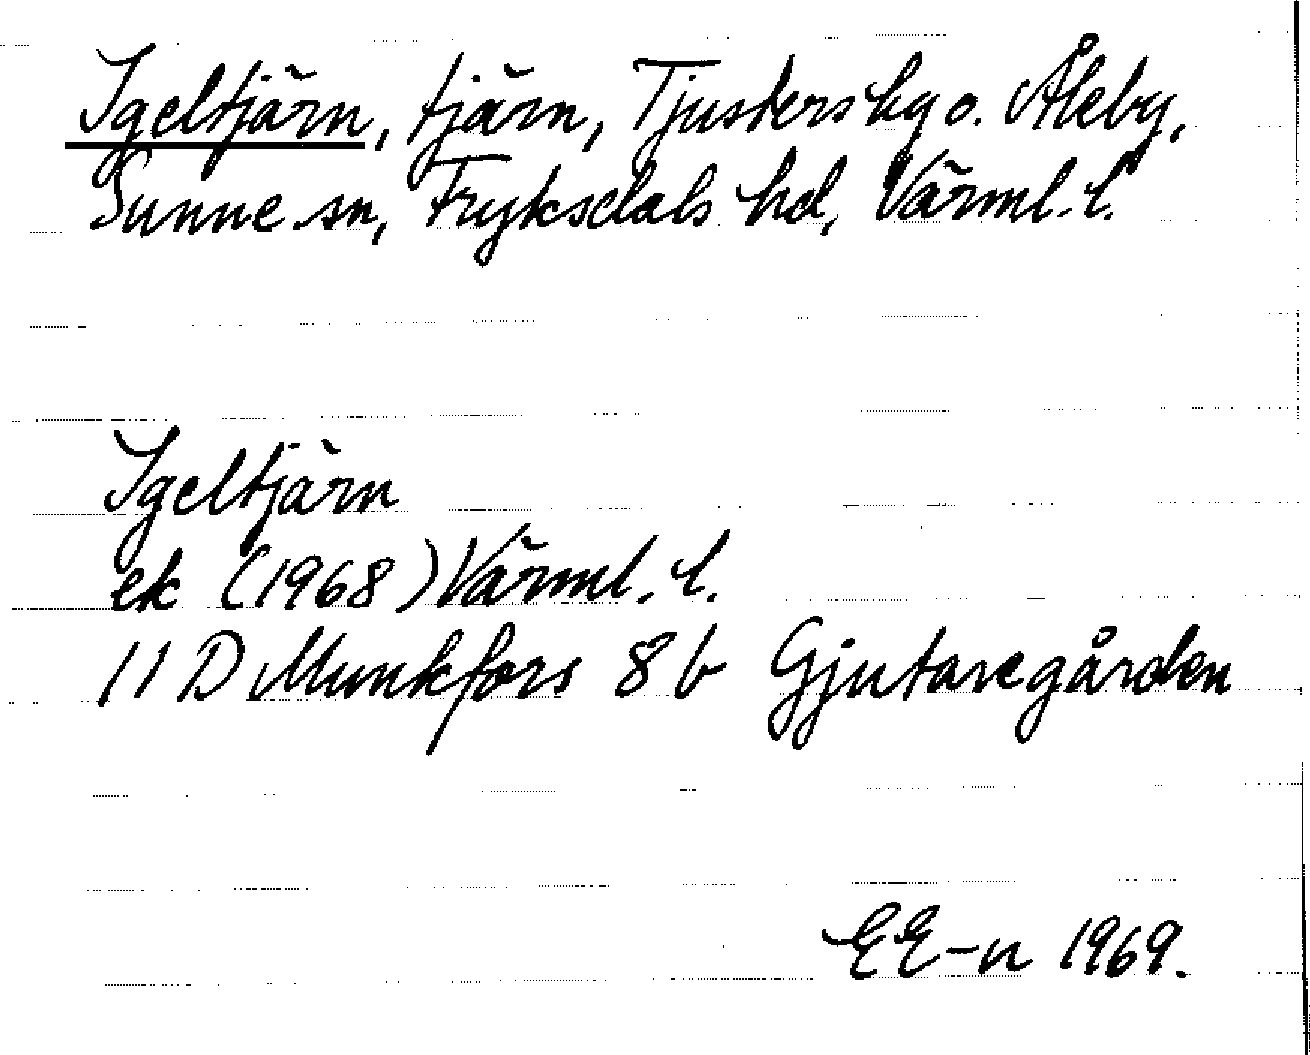 Igeltjärn, tjärn, Tjustersby o. Åleby,
Sunne sn, Fryksdals hd, Värml. l.
Igeltjärn
ek (1968) Värml. l.
11 D Munkfors 8 b Gjutaregården
EE-n 1969.